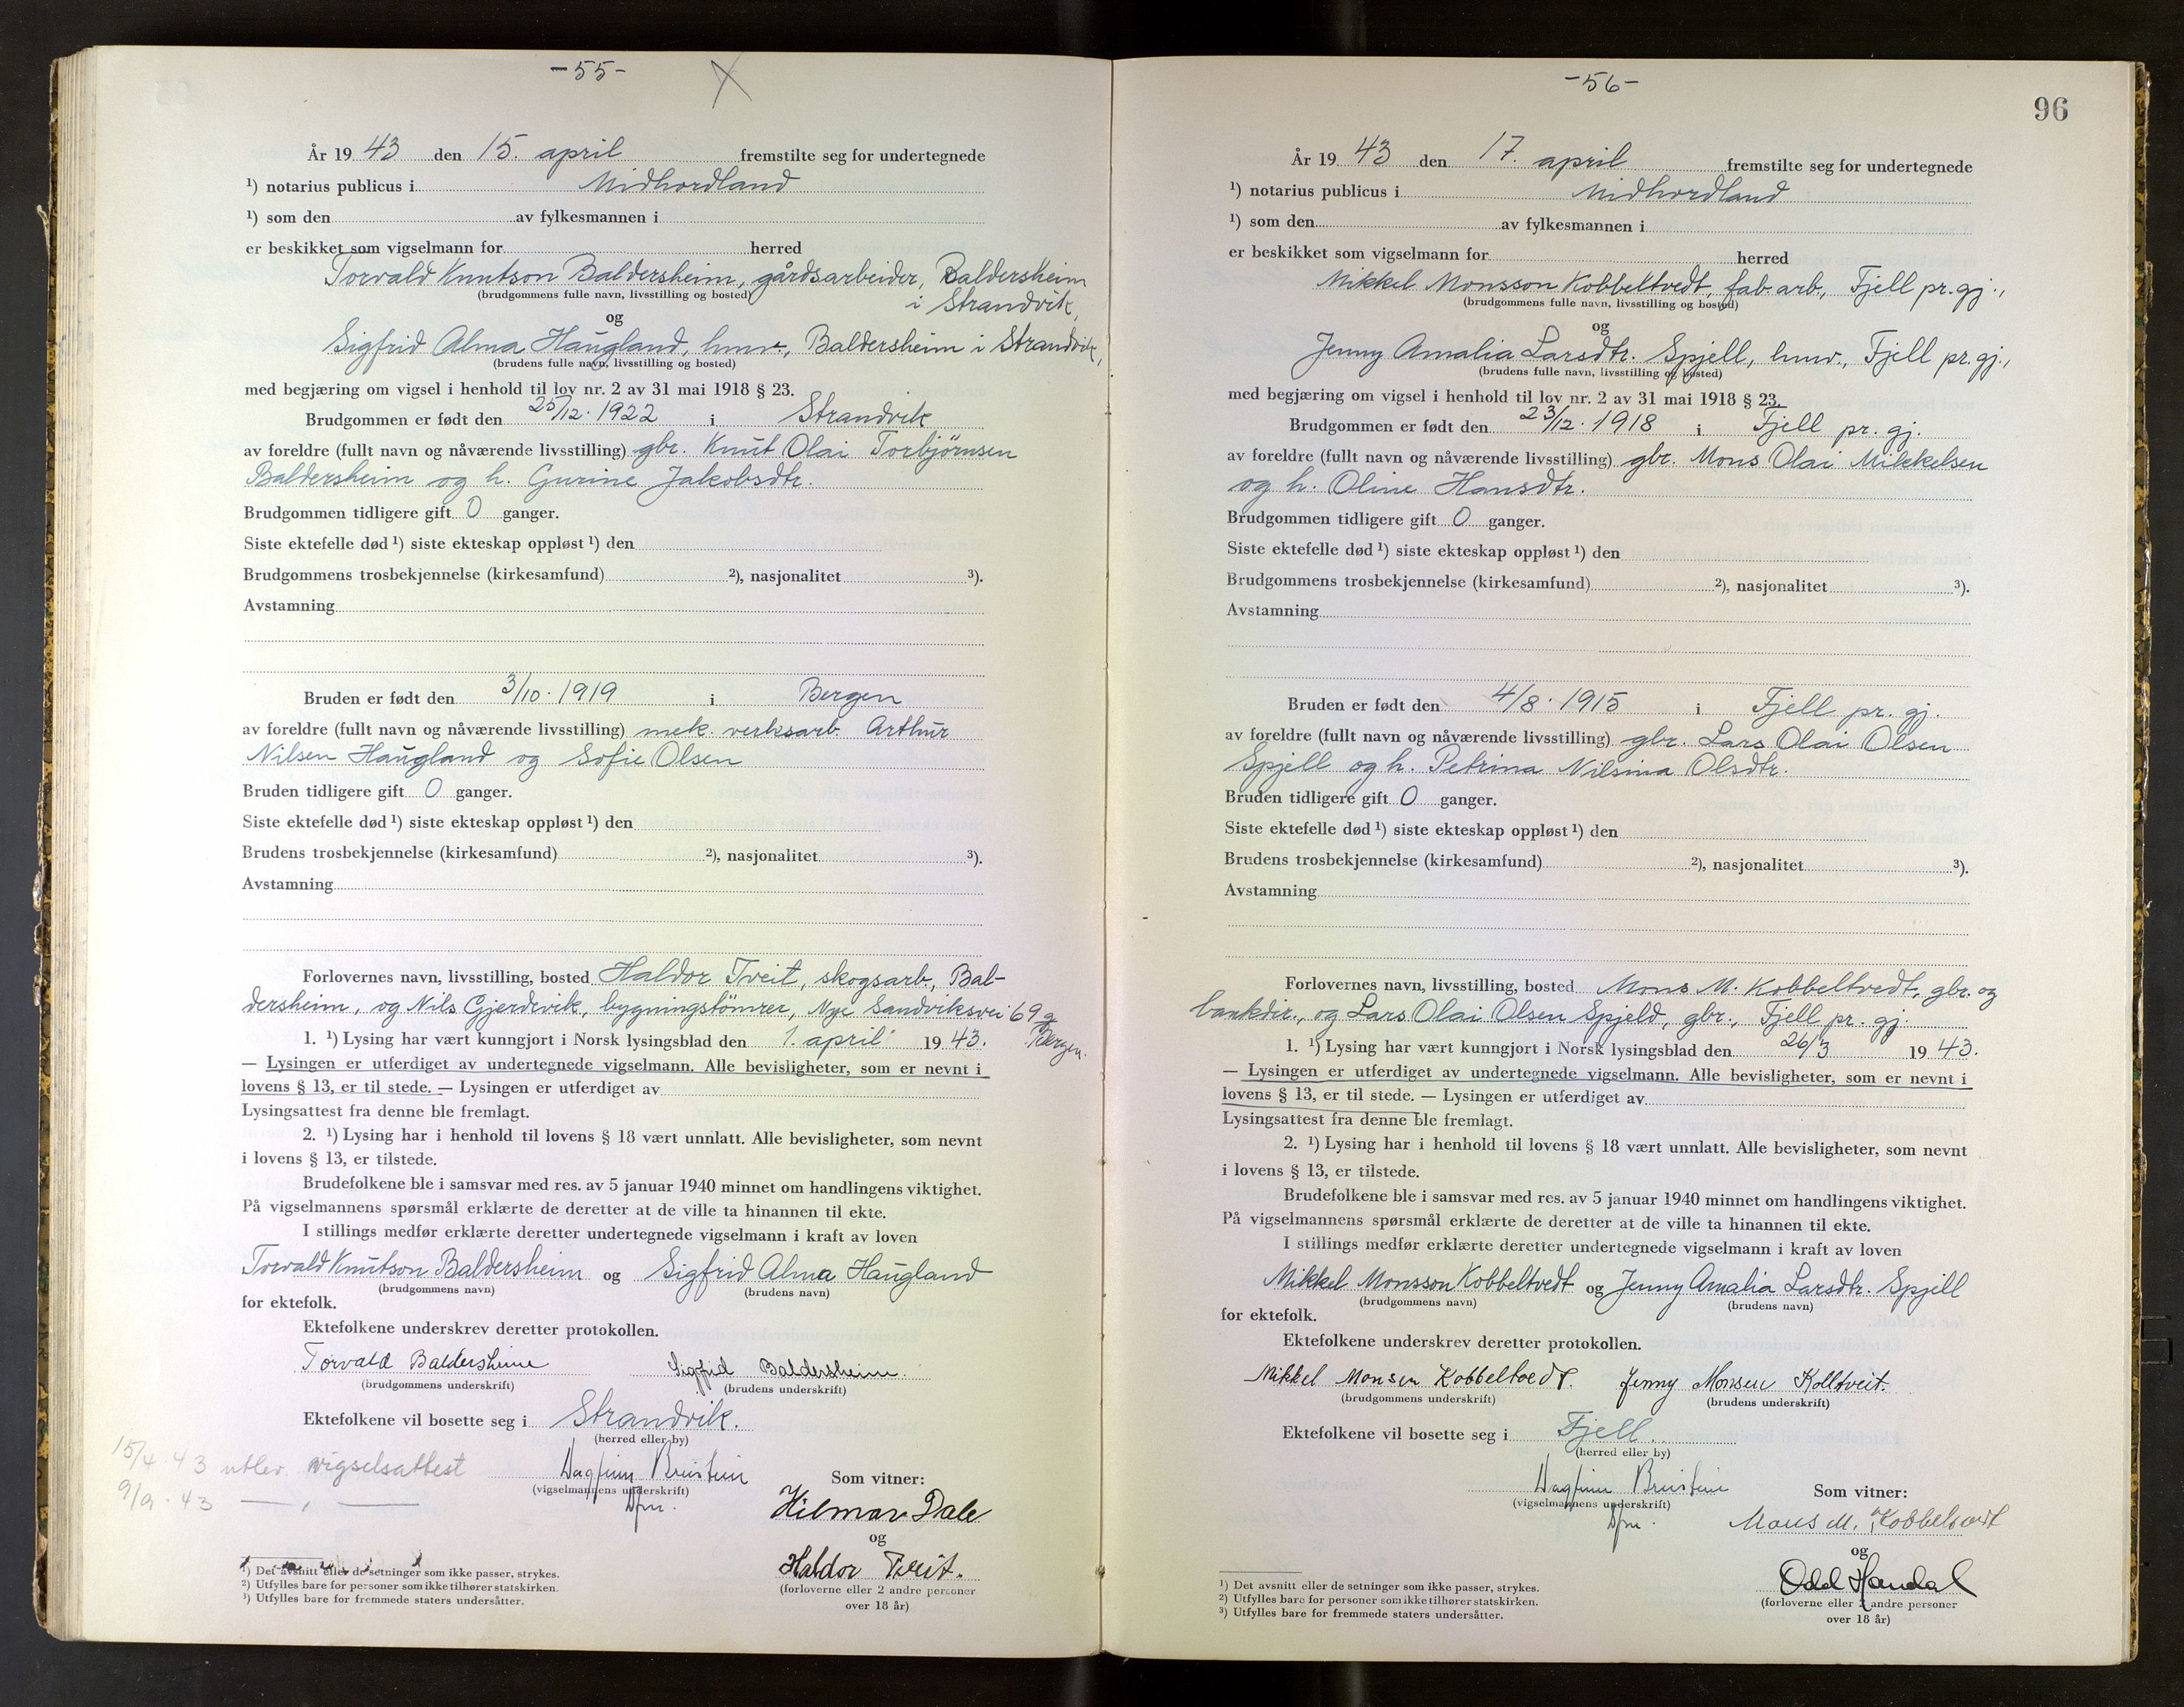 -55-
År 1943 den 15. april fremstilte seg for undertegnede
¹) notarius publicus i Midhordland
¹) som den av fylkesmannen i
er beskikket som vigselmann for herred
Torvald Knutson Baldersheim, gårdsarbeider, Baldersheim
(brudgommens fulle navn, livsstilling og bosted)
i Strandvik,
og
Sigfrid Alma Haugland, hmv., Baldersheim i Strandvik,
(brudens fulle navn, livsstilling og bosted)
med begjæring om vigsel i henhold til lov nr. 2 av 31 mai 1918 § 23.
Brudgommen er født den 25/12. 1922 i Strandvik
av foreldre (fullt navn og nåværende livsstilling) gbr. Knut Olai Torbjørnsen
Baldersheim og h. Gurine Jakobsdtr.
Brudgommen tidligere gift 0 ganger.
Siste ektefelle død ¹) siste ekteskap oppløst ¹) den
Brudgommens trosbekjennelse (kirkesamfund) ²), nasjonalitet ³).
Avstamning
Bruden er født den 3/10. 1919 i Bergen
av foreldre (fullt navn og nåværende livsstilling) mek. verksarb. Arthur
Nilsen Haugland og Sofie Olsen
Bruden tidligere gift 0 ganger.
Siste ektefelle død ¹) siste ekteskap oppløst ¹) den
Brudens trosbekjennelse (kirkesamfund) ²), nasjonalitet ³).
Avstamning
Forlovernes navn, livsstilling, bosted Haldor Tveit, skogsarb., Bal-
dersheim, og Nils Gjerdevik, bygningstømrer, Nye Sandviksvei 69 g
Bergen.
1. ¹) Lysing har vært kunngjort i Norsk lysingsblad den 1. april 1943.
— Lysingen er utferdiget av undertegnede vigselmann. Alle bevisligheter, som er nevnt i
lovens § 13, er til stede. — Lysingen er utferdiget av
Lysingsattest fra denne ble fremlagt.
2. ¹) Lysing har i henhold til lovens § 18 vært unnlatt. Alle bevisligheter, som nevnt
i lovens § 13, er tilstede.
Brudefolkene ble i samsvar med res. av 5 januar 1940 minnet om handlingens viktighet.
På vigselmannens spørsmål erklærte de deretter at de ville ta hinannen til ekte.
I stillings medfør erklærte deretter undertegnede vigselmann i kraft av loven
Torvald Knutson Baldersheim og Sigfrid Alma Haugland
(brudgommens navn) (brudens navn)
for ektefolk.
Ektefolkene underskrev deretter protokollen.
Torvald Baldersheim Sigfrid Baldersheim.
(brudgommens underskrift) (brudens underskrift)
Ektefolkene vil bosette seg i Strandvik.
(herred eller by)
15/4. 43 utlev. vigselsattest
9/9. 43 — " —
Dagfinn Breistein
(vigselmannens underskrift)
dfm.
Som vitner:
Hilmar Dale
og
Haldor Tveit.
(forloverne eller 2 andre personer
over 18 år)
¹) Det avsnitt eller de setninger som ikke passer, strykes.
²) Utfylles bare for personer som ikke tilhører statskirken.
³) Utfylles bare for fremmede staters undersåtter.
-56-
96
År 1943 den 17. april fremstilte seg for undertegnede
¹) notarius publicus i Midhordland
¹) som den av fylkesmannen i
er beskikket som vigselmann for herred
Mikkel Monsson Kobbeltvedt, fab.arb., Fjell pr.gj.,
(brudgommens fulle navn, livsstilling og bosted)
og
Jenny Amalia Larsdtr. Spjell, hmv., Fjell pr.gj.,
(brudens fulle navn, livsstilling og bosted)
med begjæring om vigsel i henhold til lov nr. 2 av 31 mai 1918 § 23.
Brudgommen er født den 23/12. 1918 i Fjell pr. gj.
av foreldre (fullt navn og nåværende livsstilling) gbr. Mons Olai Mikkelsen
og h. Oline Hansdtr.
Brudgommen tidligere gift 0 ganger.
Siste ektefelle død ¹) siste ekteskap oppløst ¹) den
Brudgommens trosbekjennelse (kirkesamfund) ²), nasjonalitet ³).
Avstamning
Bruden er født den 4/8. 1915 i Fjell pr. gj.
av foreldre (fullt navn og nåværende livsstilling) gbr. Lars Olai Olsen
Spjell og h. Petrina Nilsina Olsdtr.
Bruden tidligere gift 0 ganger.
Siste ektefelle død ¹) siste ekteskap oppløst ¹) den
Brudens trosbekjennelse (kirkesamfund) ²), nasjonalitet ³).
Avstamning
Forlovernes navn, livsstilling, bosted Mons M. Kobbeltvedt, gbr. og
bankdir., og Lars Olai Olsen Spjeld, gbr., Fjell pr. gj.
1. ¹) Lysing har vært kunngjort i Norsk lysingsblad den 26/3 1943.
— Lysingen er utferdiget av undertegnede vigselmann. Alle bevisligheter, som er nevnt i
lovens § 13, er til stede. — Lysingen er utferdiget av
Lysingsattest fra denne ble fremlagt.
2. ¹) Lysing har i henhold til lovens § 18 vært unnlatt. Alle bevisligheter, som nevnt
i lovens § 13, er tilstede.
Brudefolkene ble i samsvar med res. av 5 januar 1940 minnet om handlingens viktighet.
På vigselmannens spørsmål erklærte de deretter at de ville ta hinannen til ekte.
I stillings medfør erklærte deretter undertegnede vigselmann i kraft av loven
Mikkel Monsson Kobbeltvedt og Jenny Amalia Larsdtr. Spjell
(brudgommens navn) (brudens navn)
for ektefolk.
Ektefolkene underskrev deretter protokollen.
Mikkel Monsen Kobbeltvedt. Jenny Monsen Kolltveit.
(brudgommens underskrift) (brudens underskrift)
Ektefolkene vil bosette seg i Fjell.
(herred eller by)
Dagfinn Breistein
(vigselmannens underskrift)
dfm.
Som vitner:
Mons M. Kobbeltvedt
og
Odd Handal
(forloverne eller 2 andre personer
over 18 år)
¹) Det avsnitt eller de setninger som ikke passer, strykes.
²) Utfylles bare for personer som ikke tilhører statskirken.
³) Utfylles bare for fremmede staters undersåtter.